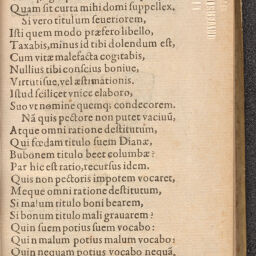 Quam sit curta mihi domi suppellex.
Si vero titulum seueriorem,
Isti quem modo præfero libello,
Taxabis, minus id tibi dolendum est,
Cum vitæ malefacta cogitabis,
Nullius tibi conscius boniue,
Virtutisue, vel æstimationis.
Istud scilicet vnice elaboro,
Suo vt nomine quemq; condecorem.
Nã quis pectore non putet vacuũ,
Atque omni ratione destitutum,
Qui fœdam titulo suem Dianæ,
Bubonem titulo beet columbæ?
Par hic est ratio, recursus idem.
Quis non pectoris impotem vocaret,
Meque omni ratione destitutum,
Si malum titulo boni bearem,
Si bonum titulo mali grauarem?
Quin suem potius suem vocabo:
Quin malum potius malum vocabo:
Quin nequam potius vocabo nequã,